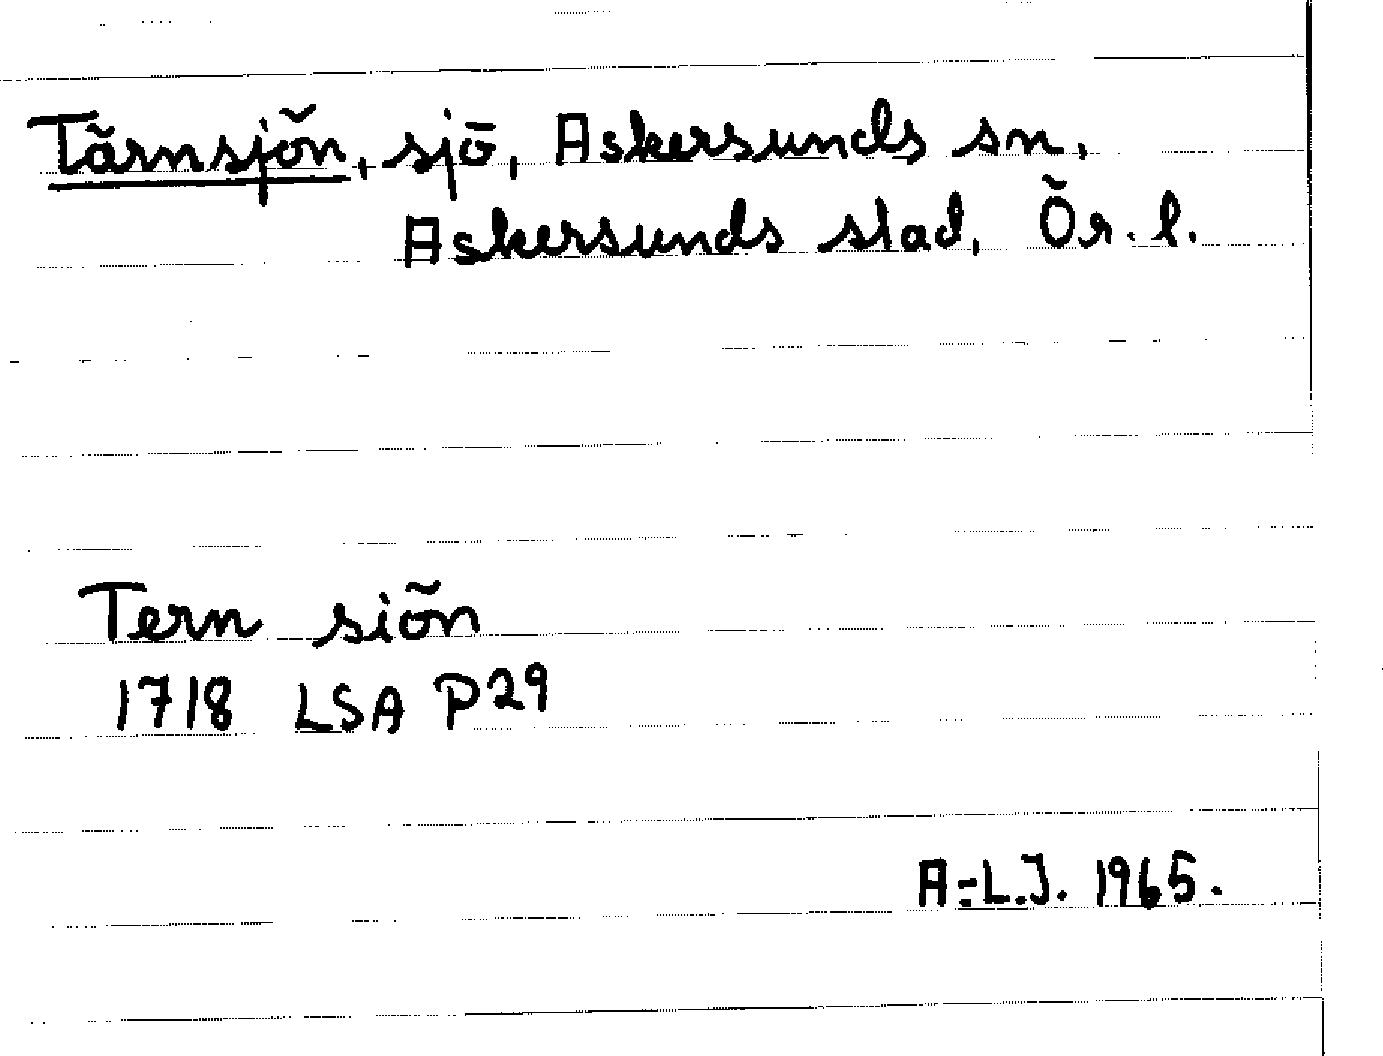 Tärnsjön, sjö, Askersunds sn,
Askersunds stad, Ör. l.
Tern siön
1718 LSA P29
A-L.J. 1965.